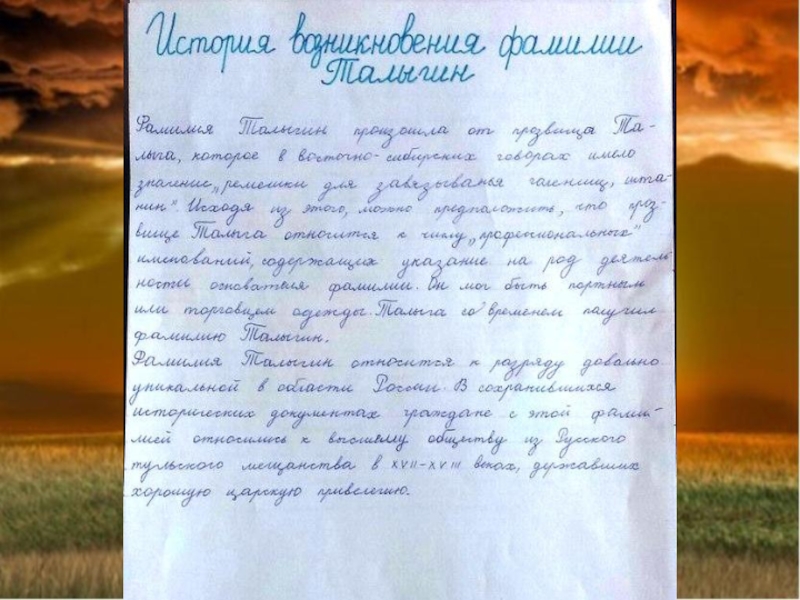 История возникновения фамилии
Талыгин
Фамилия Талыгин произошла от прозвища Та-
лыга, которое в восточно-сибирских говорах имело
значение „ремешки для завязыванья голенищ, шта-
нин". Исходя из этого, можно предположить, что проз-
вище Талыга относится к числу „профессиональных"
именований, содержащих указание на род деятель-
ности основателя фамилии. Он мог быть портным
или торговцем одежды. Талыга со временем получил
фамилию Талыгин.
Фамилия Талыгин относится к разряду довольно
уникальной в области России. В сохранившихся
исторических документах граждане с этой фами-
лией относились к высшему обществу из Русского
тульского мещанства в XVII-XVIII веках, державших
хорошую царскую привелегию.